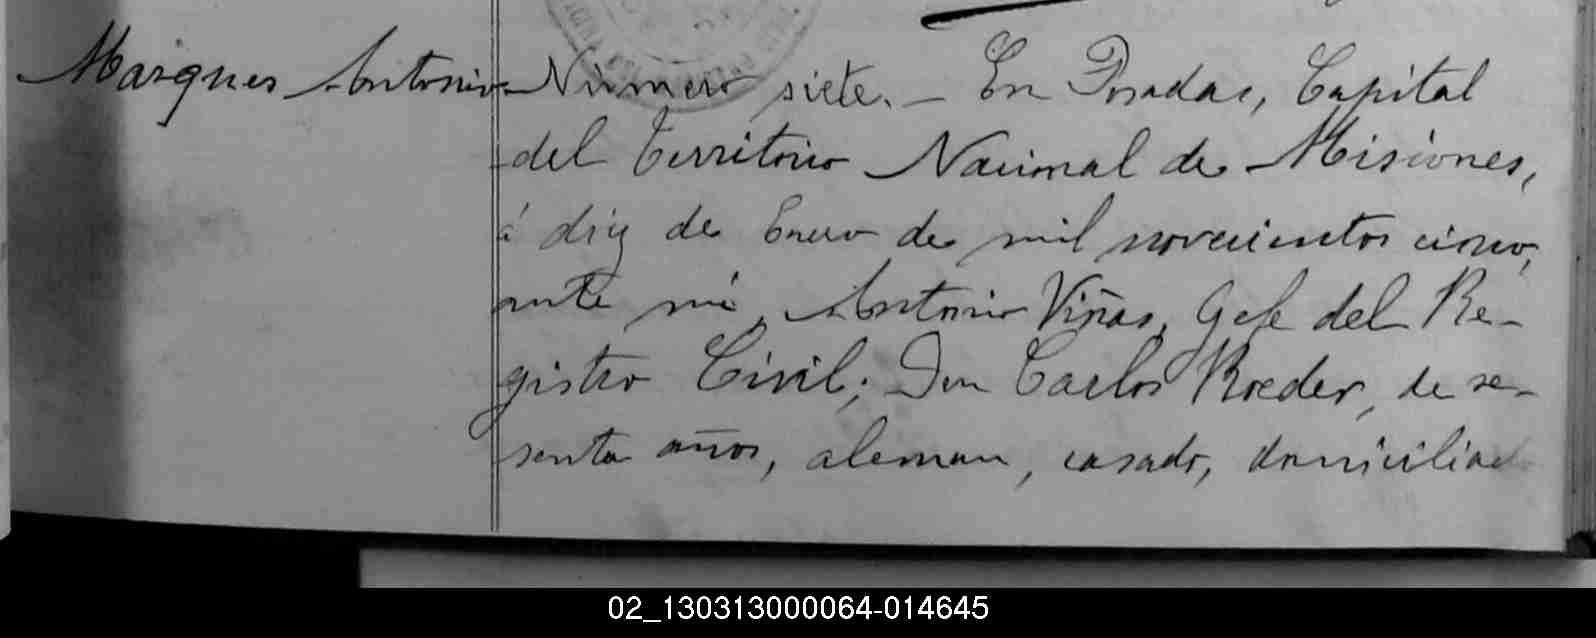 Marques Antonio
Número siete. — En Posadas, Capital
del Territorio Nacional de Misiones,
á diez de Enero de mil novecientos cinco,
ante mí, Antonio Viñas, Gefe del Re-
gistro Civil; Don Carlos Roeder, de se-
senta años, aleman, casado, domiciliad
02_130313000064-014645